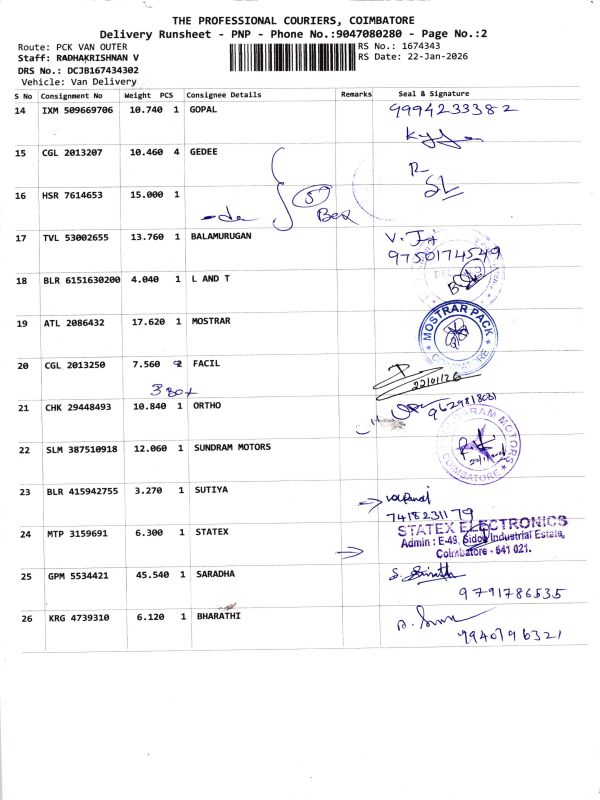 THE PROFESSIONAL COURIERS, COIMBATORE
Delivery Runsheet - PNP - Phone No.:9047080280 - Page No.:2
Route: PCK VAN OUTER
RS No.: 1674343
Staff: RADHAKRISHNAN V
RS Date: 22-Jan-2026
DRS No.: DCJB167434302
Vehicle: Van Delivery
S No Consignment No Weight PCS Consignee Details Remarks Seal & Signature
14 IXM 509669706 10.740 1 GOPAL 9994233382
15 CGL 2013207 10.460 4 GEDEE
16 HSR 7614653 15.000 1
5 Box
17 TVL 53002655 13.760 1 BALAMURUGAN
9750174549
18 BLR 6151630200 4.040 1 L AND T
19 ATL 2086432 17.620 1 MOSTRAR
MOSTRAR PACK
COIMBATORE
20 CGL 2013250 7.560 2 FACIL
22/01/26
3 Box
21 CHK 29448493 10.840 1 ORTHO
22 SLM 387510918 12.060 1 SUNDRAM MOTORS
MOTORS
COIMBATORE
23 BLR 415942755 3.270 1 SUTIYA
7418231179
24 MTP 3159691 6.300 1 STATEX
STATEX ELECTRONICS
Admin : E-49, Sidco Industrial Estate,
Coimbatore - 641 021.
25 GPM 5534421 45.540 1 SARADHA
9791786535
26 KRG 4739310 6.120 1 BHARATHI
9940796321